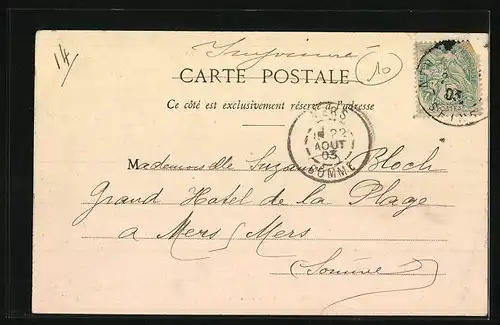 14
Imprimé
10
CARTE POSTALE
Ce côté est exclusivement réservé à l'adresse
MERS
22
AOUT
03
SOMME
03
SEINE
Mademoiselle Suzanne Bloch
Grand Hotel de la Plage
a Mers / Mers
(Somme)